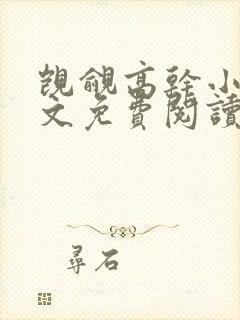 覬覦高幹小
文免費閱讀
尋石